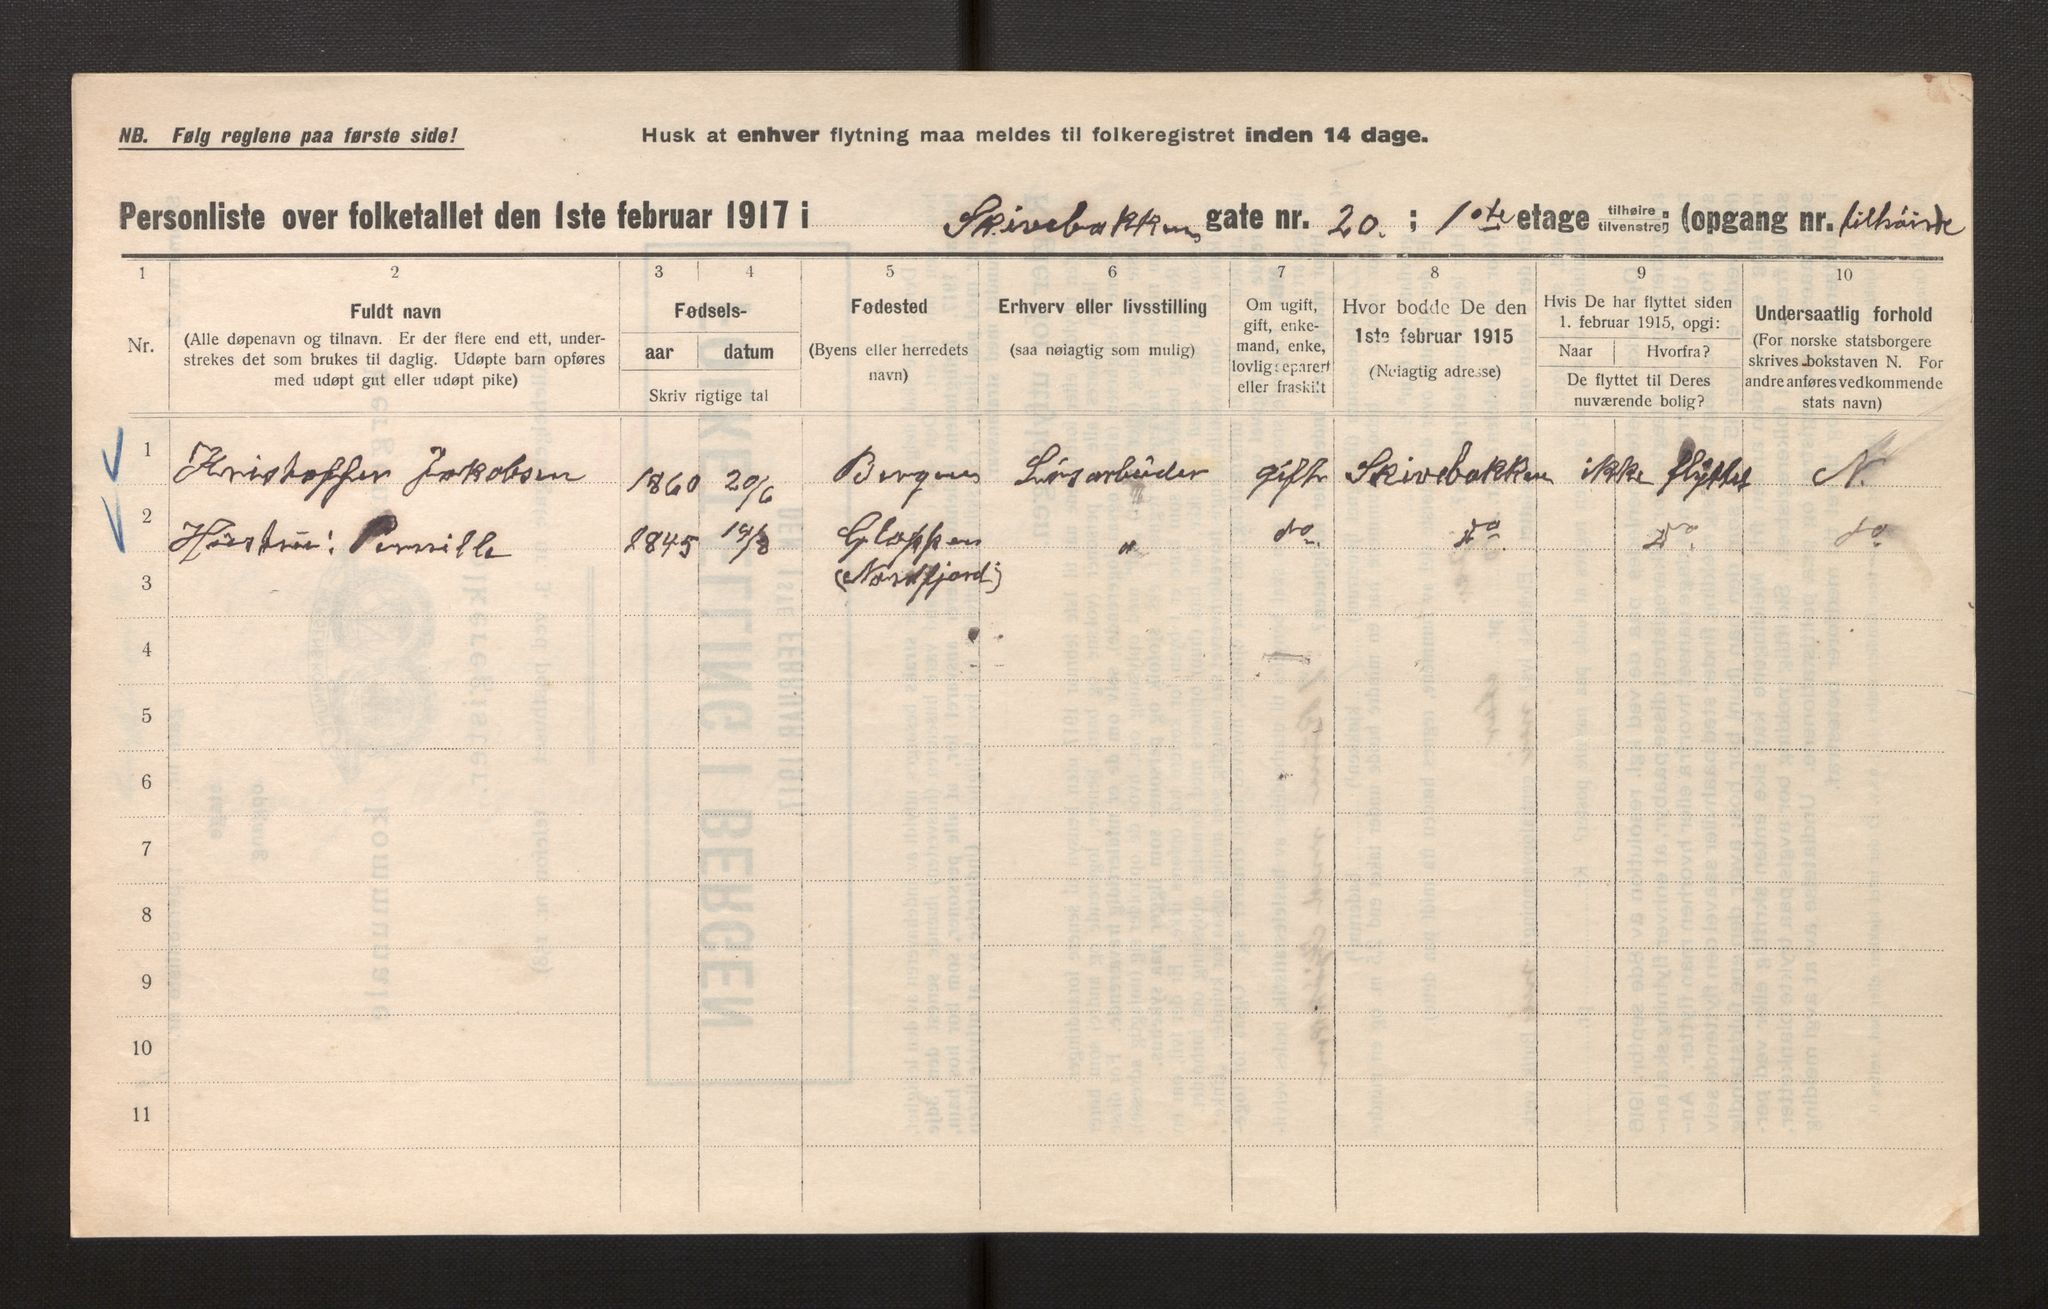 NB. Følg reglene paa første side!
Husk at enhver flytning maa meldes til folkeregistret inden 14 dage.
Personliste over folketallet den 1ste februar 1917 i Skivebakken gate nr. 20. ; 1ste etage tilhøire tilvenstre ; (opgang nr. tilhöire
1 2 3 4 5 6 7 8 9 10
Nr.
Fuldt navn
(Alle døpenavn og tilnavn. Er der flere end ett, under-
strekes det som brukes til daglig. Udøpte barn opføres
med udøpt gut eller udøpt pike)
Fødsels-
aar datum
Skriv rigtige tal
Fødested
(Byens eller herredets
navn)
Erhverv eller livsstilling
(saa nøiagtig som mulig)
Om ugift,
gift, enke-
mand, enke,
lovlig separert
eller fraskilt
Hvor bodde De den
1ste februar 1915
(Nøiagtig adresse)
Hvis De har flyttet siden
1. februar 1915, opgi:
Naar Hvorfra?
De flyttet til Deres
nuværende bolig?
Undersaatlig forhold
(For norske statsborgere
skrives bokstaven N. For
andre anføres vedkommende
stats navn)
1 Kristoffer Jakobsen 1860 20/6 Bergen Løsarbeider gift Skivebakken ikke flyttet N.
2 Hüstrü: Pernille 1845 Gloppen " do do. do. do
3 (Nordfjord)
4
5
6
7
8
9
10
11